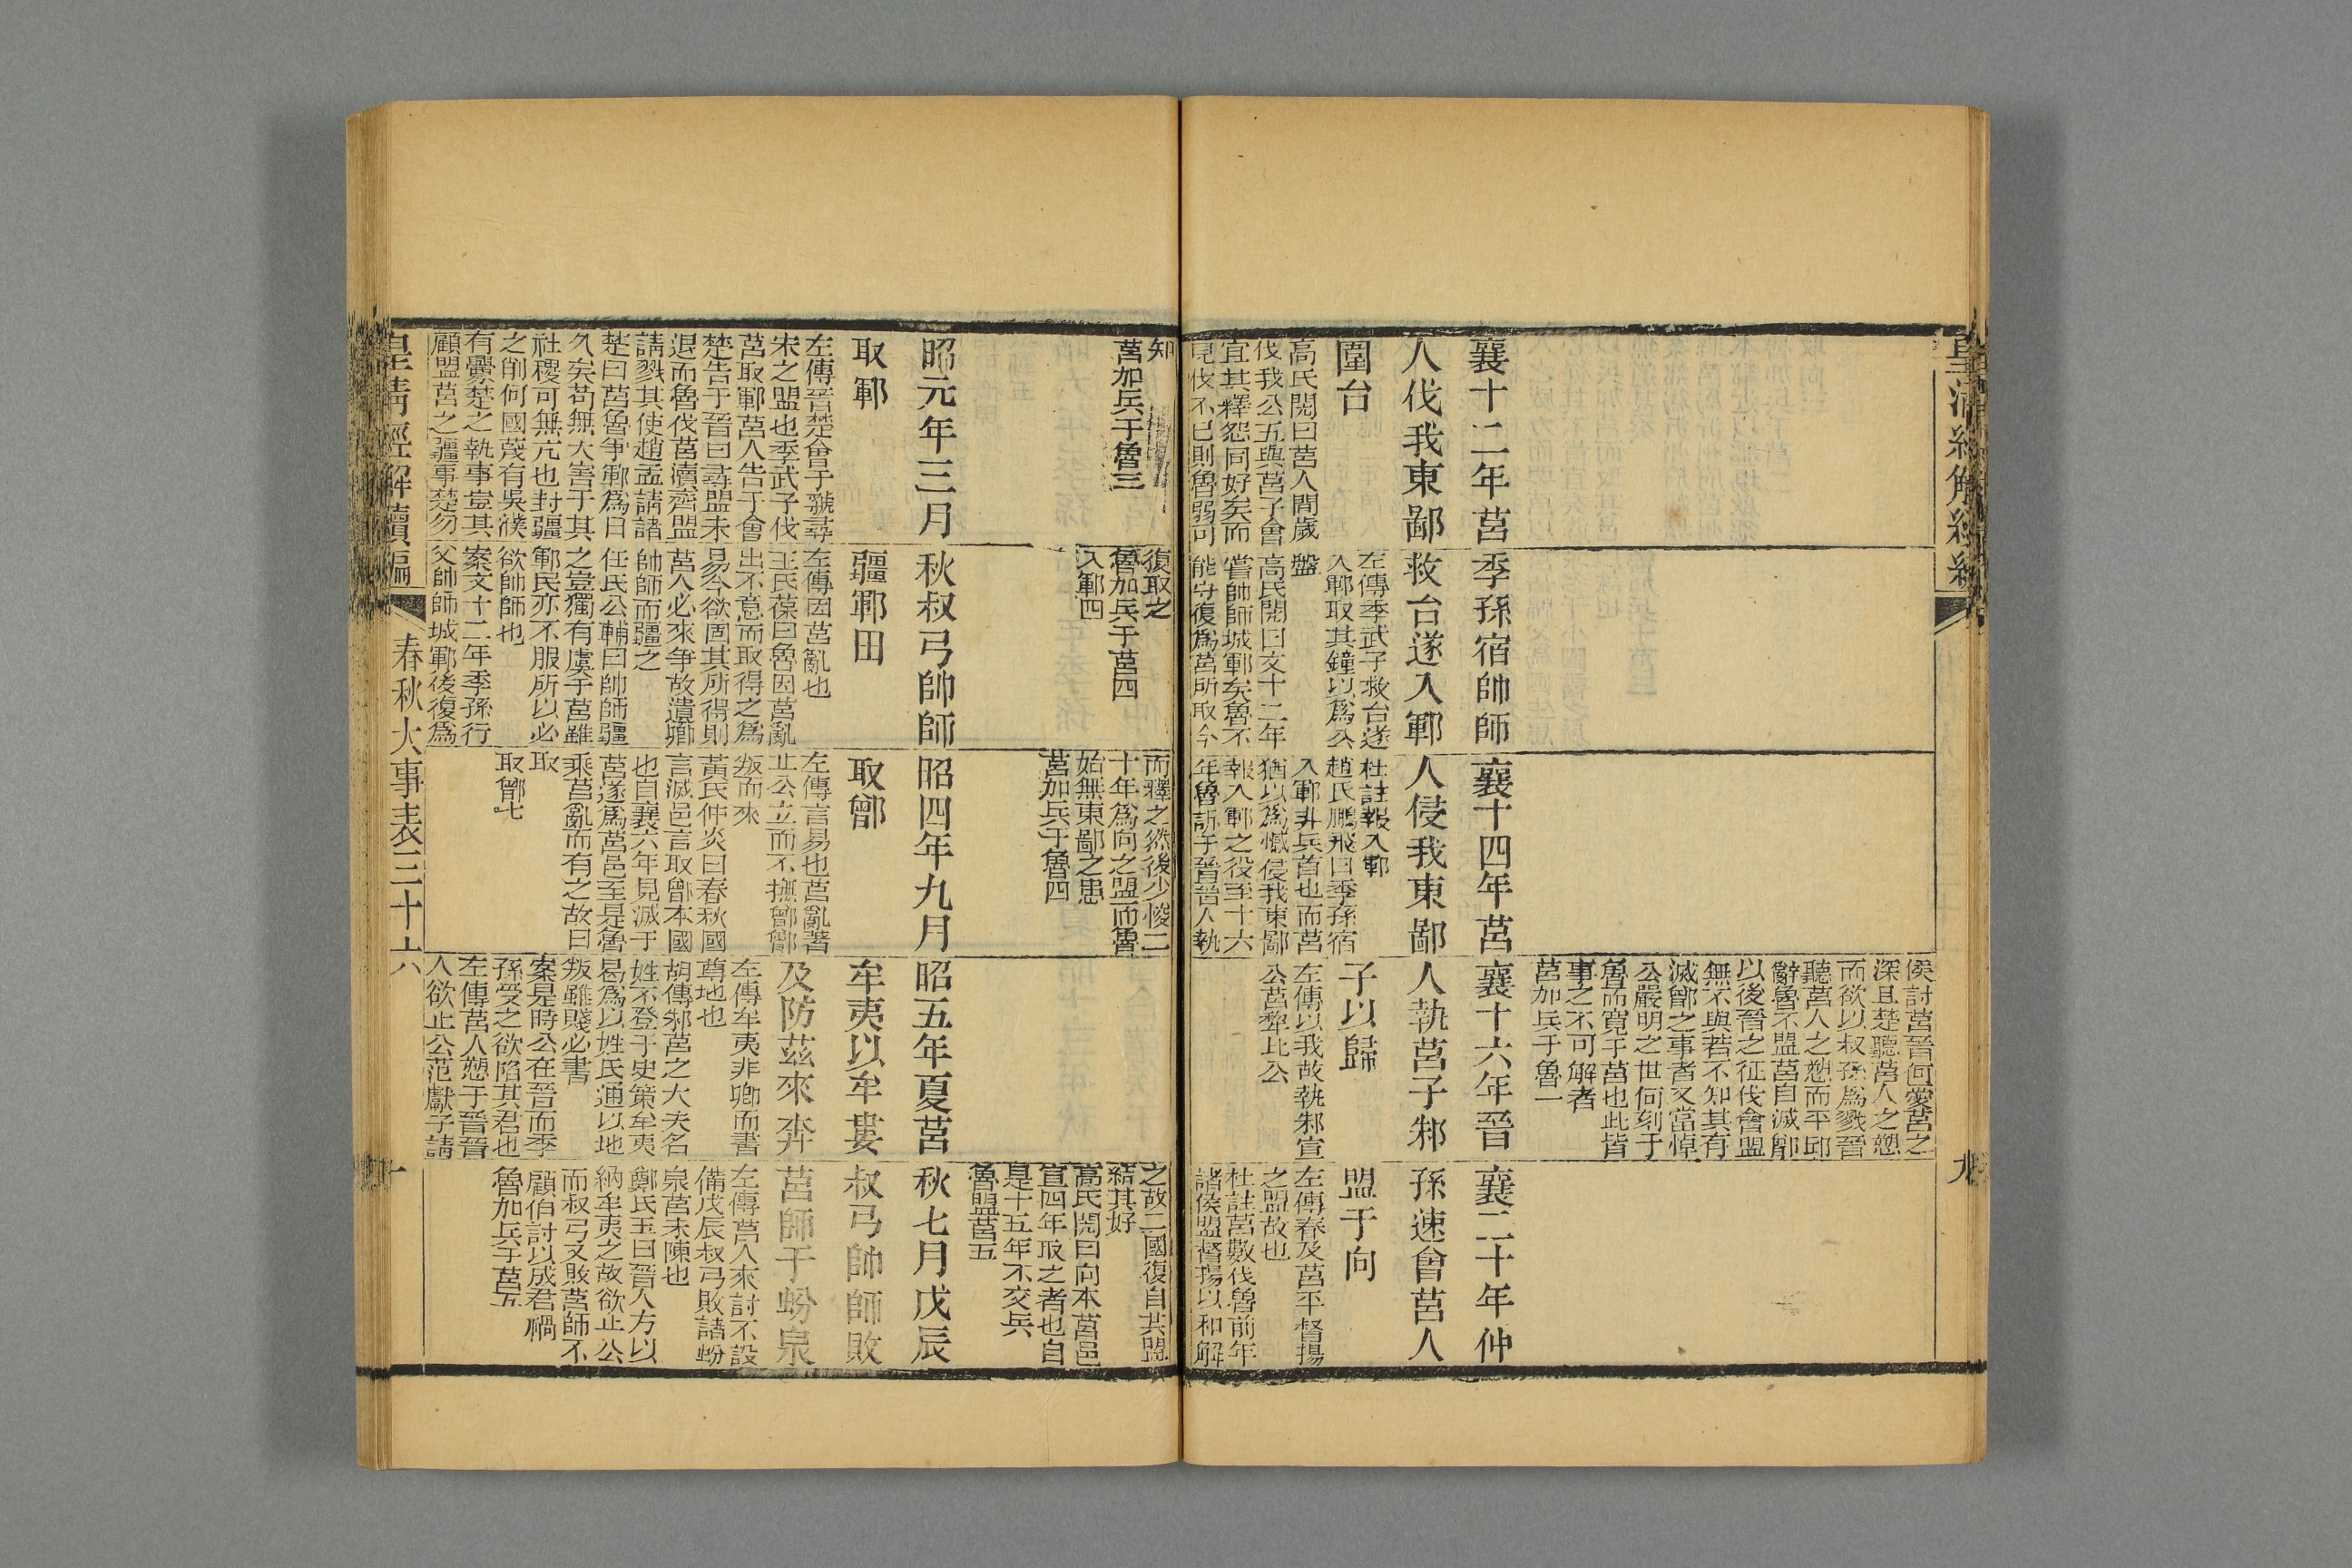 皇清經解續編
九
侯討莒晉何愛莒之
深且楚聽莒人之愬
而欲以叔孫爲戮晉
聽莒人之愬而平邱
辭魯不盟莒自滅鄫
以後晉之征伐會盟
無不與若不知其有
滅鄫之事者又當悼
公嚴明之世何刻于
魯而寬于莒也此皆
事之不可解者
莒加兵于魯一
襄十二年莒
人伐我東鄙
圍台
高氏閌曰莒人閒歲
伐我公五與莒子會
宜其釋怨同好矣而
見伐不已則魯弱可
季孫宿帥師
救台遂入鄆
左傳季武子救台遂
入鄆取其鐘以爲公
盤
高氏閌曰文十二年
嘗帥師城鄆矣魯不
能守復爲莒所取今
襄十四年莒
人侵我東鄙
杜註報入鄆
趙氏鵬飛曰季孫宿
入鄆非兵首也而莒
猶以爲憾侵我東鄙
報入鄆之役至十六
年魯訴于晉晉人執
襄十六年晉
人執莒子邾
子以歸
左傳以我故執邾宣
公莒犂比公
襄二十年仲
孫速會莒人
盟于向
左傳春及莒平督揚
之盟故也
杜註莒數伐魯前年
諸侯盟督揚以和解
知
莒加兵于魯三
復取之
魯加兵于莒四
入鄆四
而釋之然後少悛二
十年爲向之盟而魯
始無東鄙之患
莒加兵于魯四
之故二國復自共盟
結其好
高氏閌曰向本莒邑
宣四年取之者也自
是十五年不交兵
魯盟莒五
昭元年三月
取鄆
左傳晉楚會于虢尋
宋之盟也季武子伐
莒取鄆莒人告于會
楚告于晉曰尋盟未
退而魯伐莒瀆齊盟
請戮其使趙孟請諸
楚曰莒魯爭鄆爲日
久矣苟無大害于其
社稷可無亢也封疆
之削何國蔑有吳濮
有釁楚之執事豈其
顧盟莒之疆事楚勿
秋叔弓帥師
疆鄆田
左傳因莒亂也
王氏葆曰魯因莒亂
出不意而取得之爲
易今欲固其所得則
莒人必來爭故遣卿
帥師而疆之
任氏公輔曰帥師疆
之豈獨有虞于莒雖
鄆民亦不服所以必
欲帥師也
案文十二年季孫行
父帥師城鄆後復爲
昭四年九月
取鄫
左傳言易也莒亂著
丘公立而不撫鄫鄫
叛而來
黃氏仲炎曰春秋國
言滅邑言取鄫本國
也自襄六年見滅于
莒遂爲莒邑至是魯
乘莒亂而有之故曰
取
取鄫七
昭五年夏莒
牟夷以牟婁
及防茲來奔
左傳牟夷非卿而書
尊地也
胡傳邾莒之大夫名
姓不登于史策牟夷
曷爲以姓氏通以地
叛雖賤必書
案是時公在晉而季
孫受之欲陷其君也
左傳莒人愬于晉晉
人欲止公范獻子請
秋七月戊辰
叔弓帥師敗
莒師于蚡泉
左傳莒人來討不設
備戊辰叔弓敗諸蚡
泉莒未陳也
鄭氏玉曰晉人方以
納牟夷之故欲止公
而叔弓又敗莒師不
顧伯討以成君禍
魯加兵于莒五
皇淸經解續編
春秋大事表三十六
十